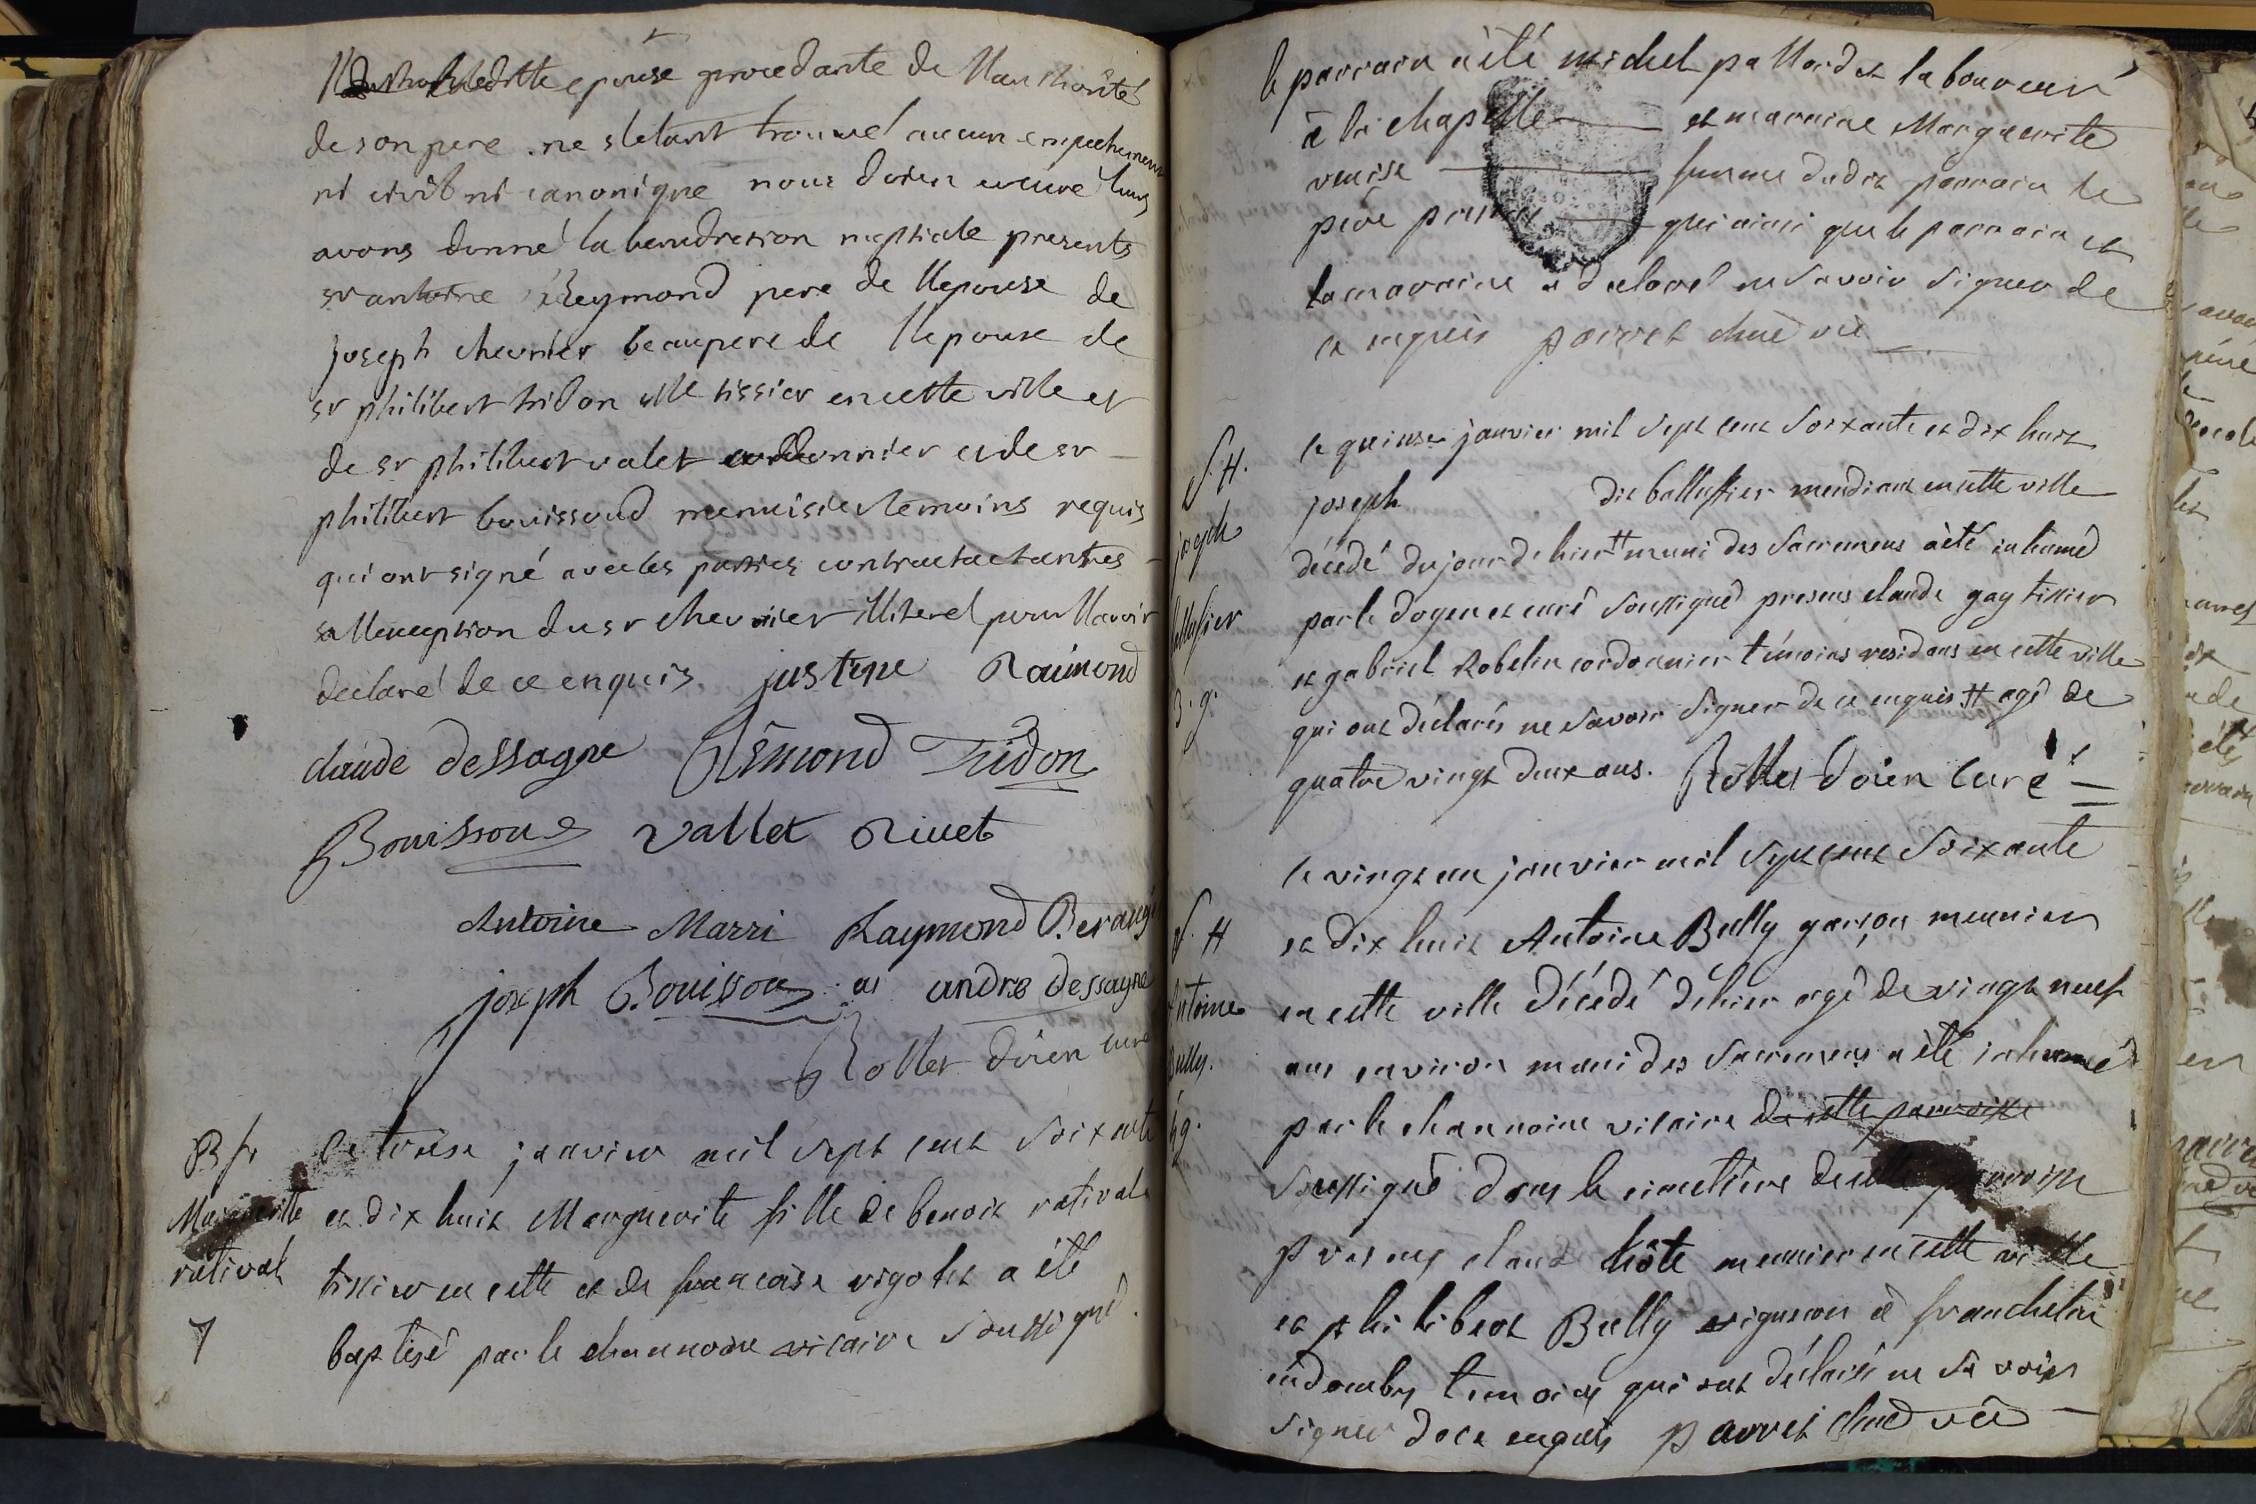 ladite epouse procedante de llauthorité
de son pere . ne sletant trouvé aucun empechement
ni civil ni canonique nous doien curé
avons donné la benediction nuptiale presents
sr antoine Reymond pere de llepouse de
joseph chevrier beaupere de llepouse de
sr philibert tridon tissier en cette ville et
de sr philibert valet cordonnier et de sr
philibert bouissoud menuisier temoins requis
qui ont signé avec les parties contractactantes
a llexception du sr chevrier illiteré pour llavoir
declaré de ce enquis justine Raimond
claude dessagne Rémond Tridon
Bouissoud vallet Rivet
Antoine Marri Raymond Beraug
joseph Bouissou andre dessagne
Rollet doien curé
B fr
Marguerite
rativat
7
Le treise janvier mil sept cent soixante
et dix huit Marguerite fille de benoit rativat
tissier en cette et de francoise vigolet a été
baptisé par le chanoine vicaire soussigné.
le parrain a été michel pallord et laboureur
à la chapelle et maraine Marguerite
venise femme dudit parrain le
père present qui ainsi que le parrain et
la maraine a declaré ne savoir signer de
ce enquis parret chne vic
S. H.
joseph
ballufier
3. g.
le quinse janvier mil sept cent soixante et dix huit
joseph dit ballufier mendiant en cette ville
décédé du jour dhier # muni des sacremens a été inhumé
par le doyen et curé soussigné presens claude gay tissier
et gabriel Robelin cordonnier témoins residans en cette ville
qui ont déclarés ne savoir signer de ce enquis # agé de
quatre vingt deux ans. Rollet doien curé
S. H
Antoine
Bully.
g.
le vingt un janvier mil sept cent soixante
et dix huit Antoine Bully garçon meunier
en cette ville décédé dhier agé de vingt neuf
ans environ muni des sacremens a été inhumé
par le channoine vicaire de cette parroisse
soussigné dans le cimetiere de cette parroisse
presens claud hôte meunier en cette ville
et philibert Bully vigneron à francheleins
en dombes temoins qui ont déclaré ne savoir
signer de ce enquis parret chne vic